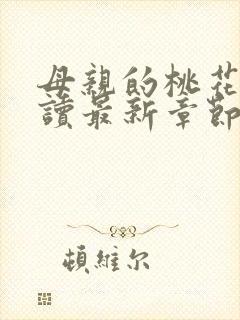 母親的桃花
讀最新章節
頓維尔